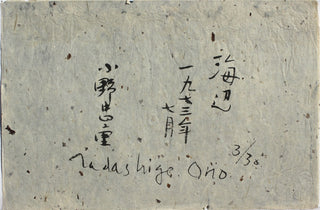 海辺
一九七三年
七月
小野忠重
Tadashige Ono
3/30